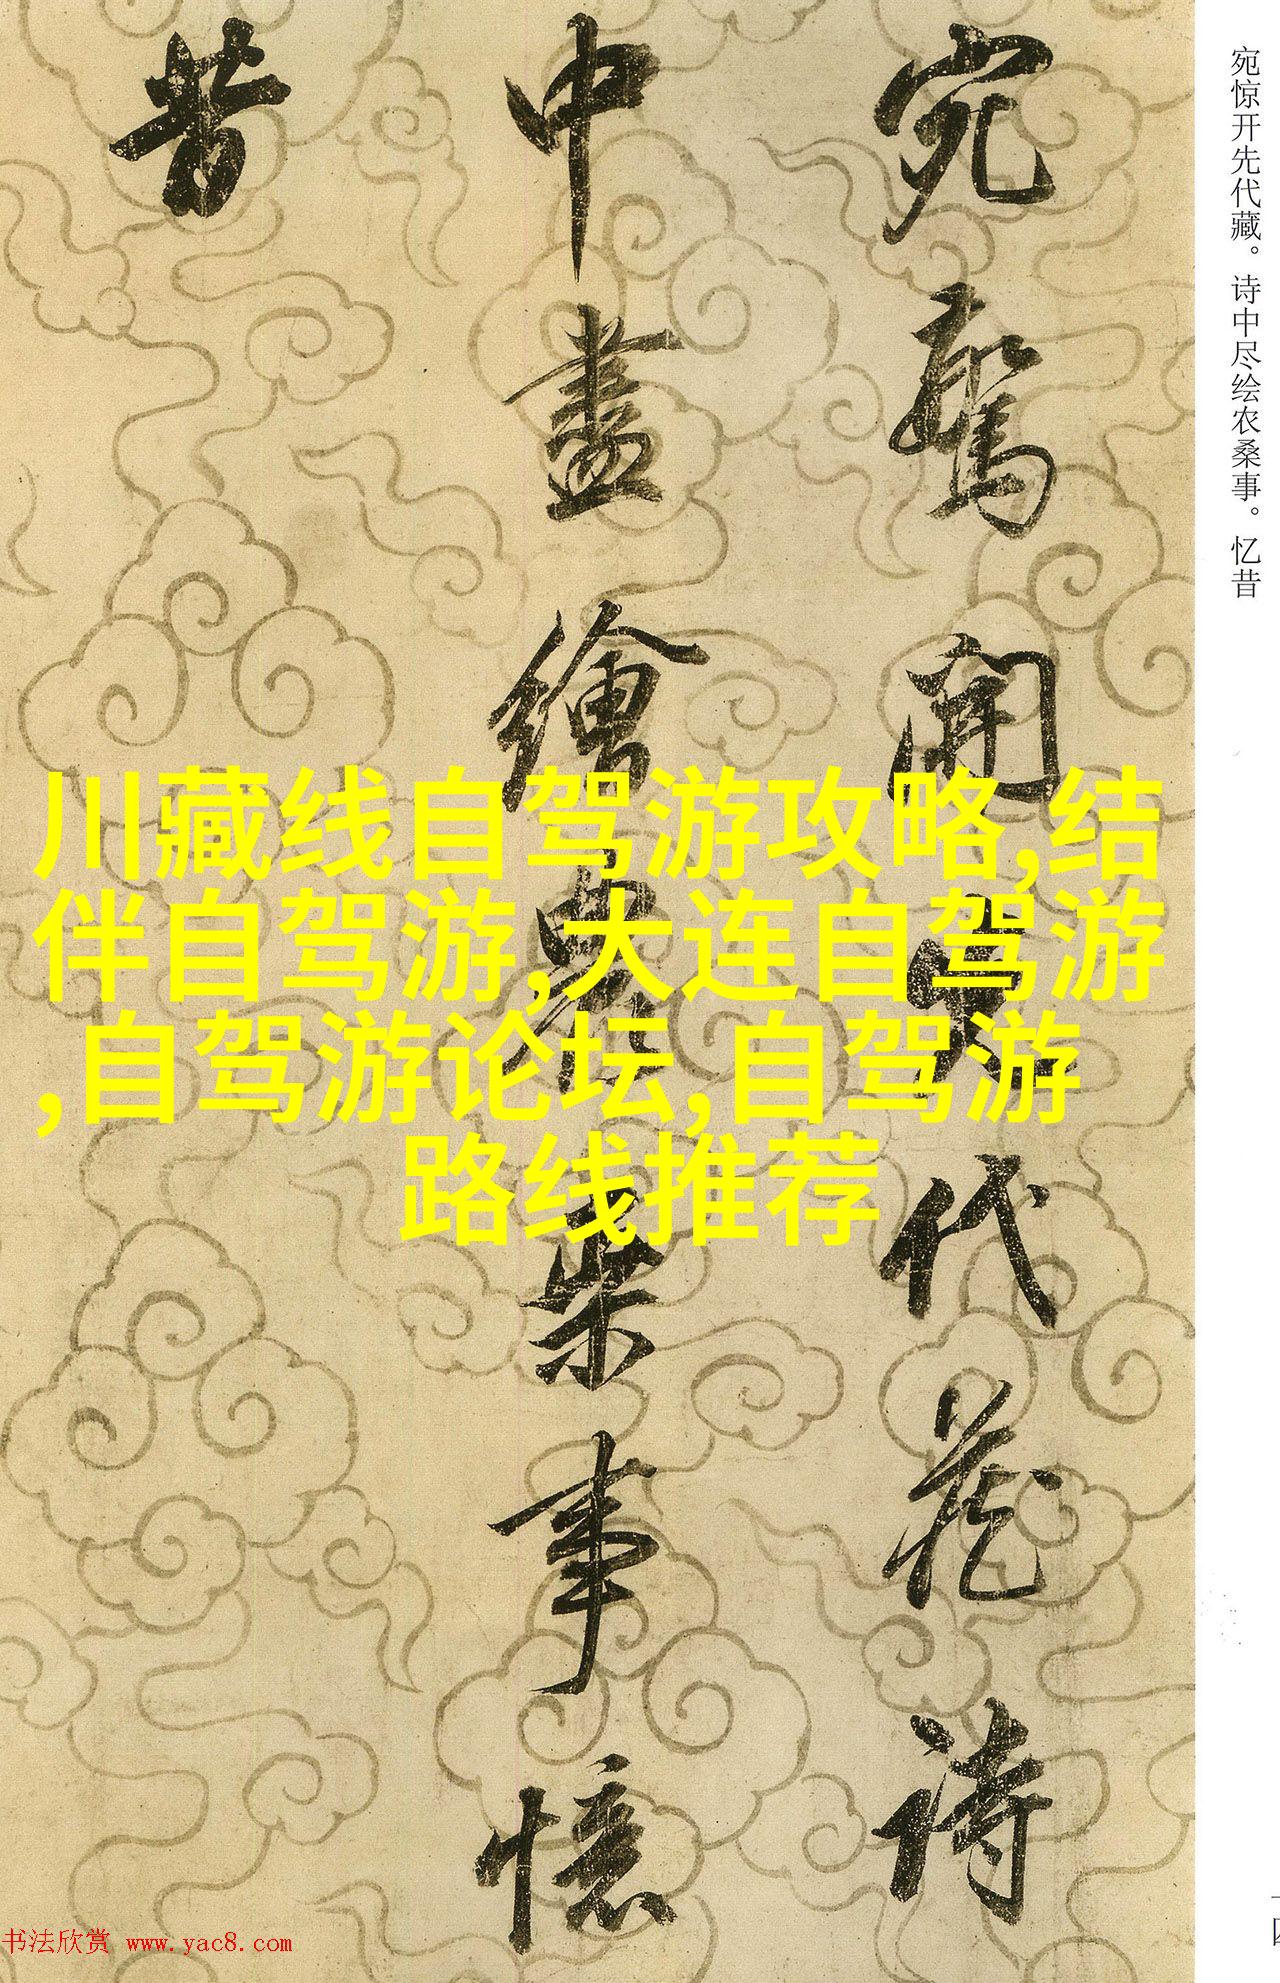 宛驚開先代藏詩
中盡繪農桑事憶
昔
宛惊开先代藏。诗中尽绘农桑事。忆昔
川藏线自驾游攻略,结
伴自驾游,大连自驾游
,自驾游论坛,自驾游
路线推荐
书法欣赏 www.yac8.com